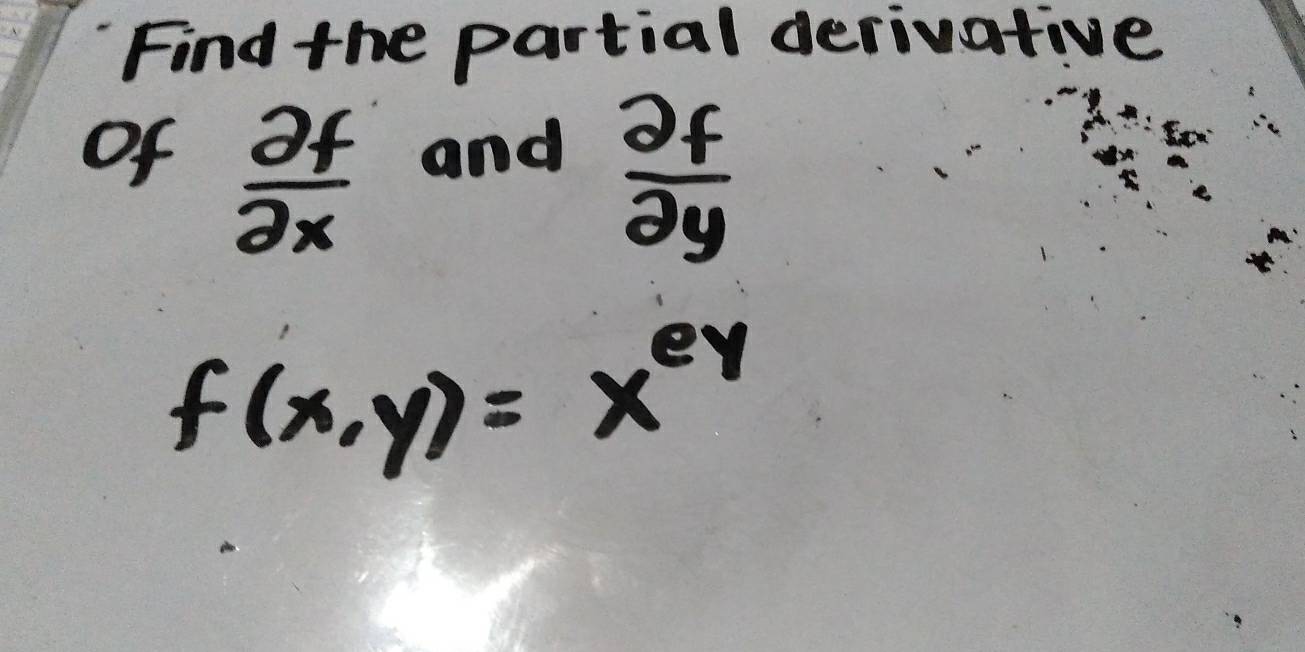 Find the partial derivative
of ∂f/∂x and ∂f/∂y
f(x,y) = x^{ey}